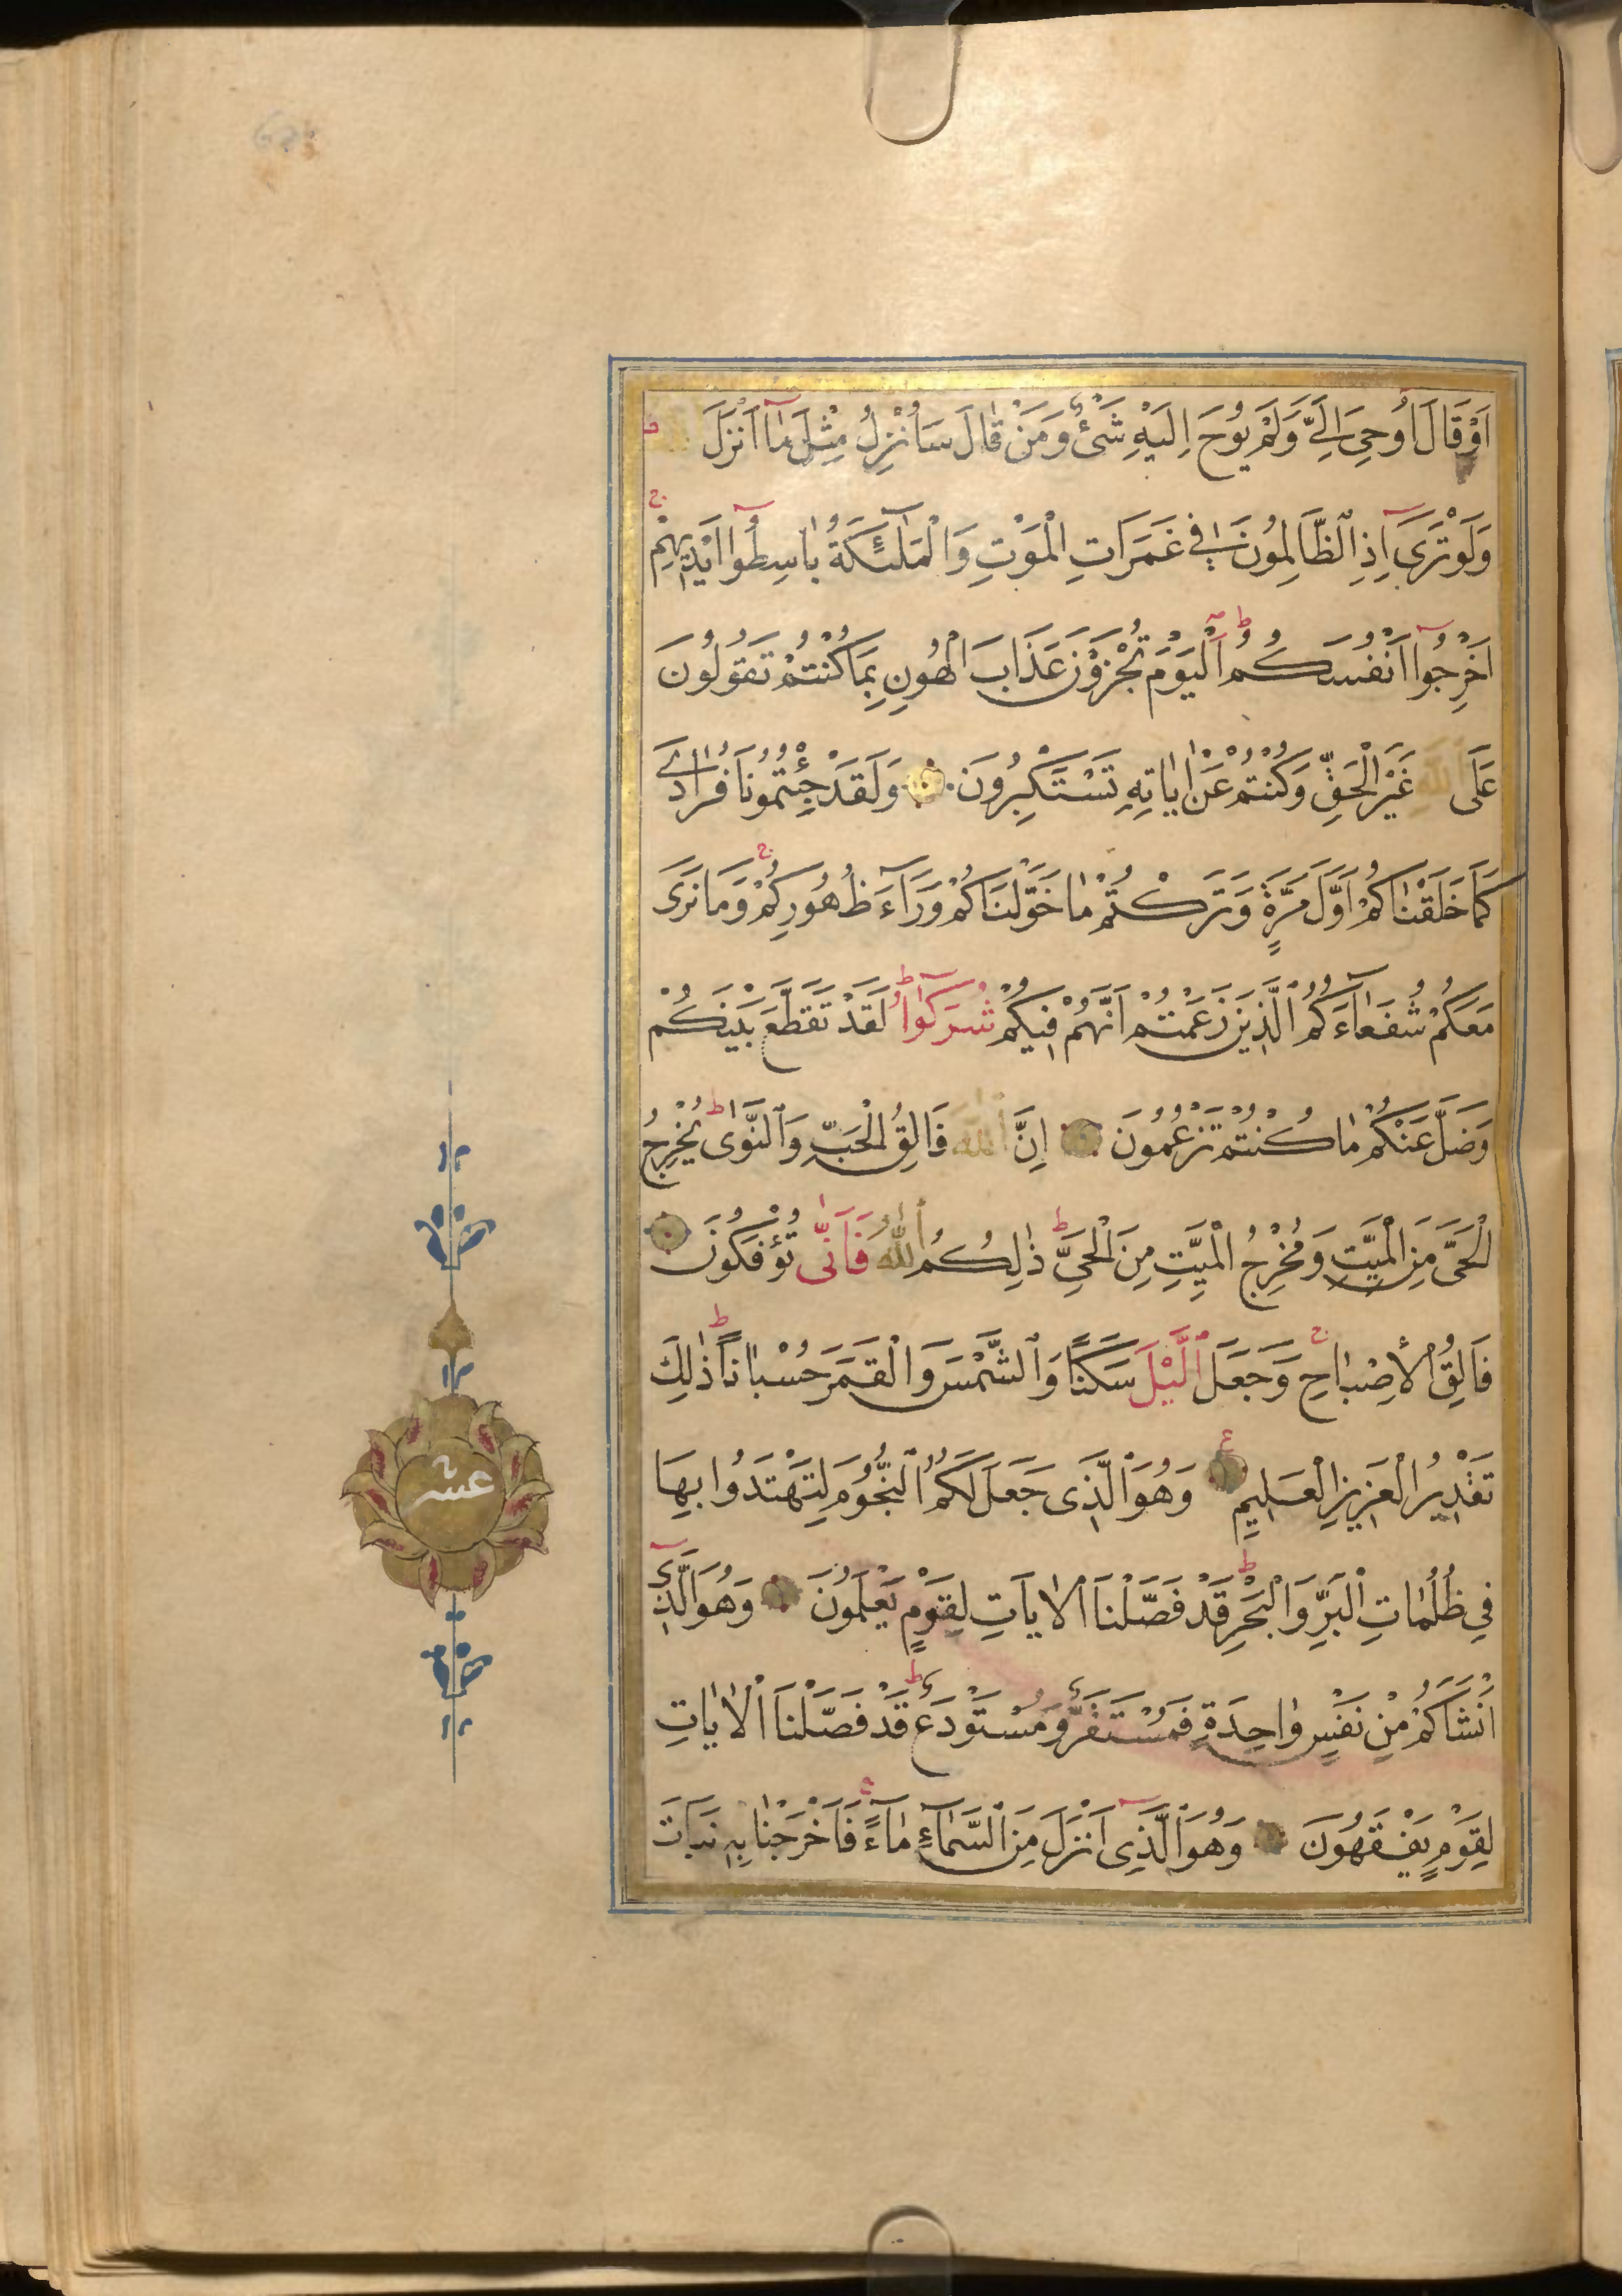 اَوْ قَالَ اُوحِىَ اِلَىَّ وَلَمْ يُوحَ اِلَيْهِ شَىْءٌ وَمَنْ قَالَ سَاُنْزِلُ مِثْلَ مَآ اَنْزَلَ اللهُ
وَلَوْ تَرَىٓ اِذِ الظَّالِمُونَ فِى غَمَرَاتِ الْمَوْتِ وَالْمَلٰٓئِكَةُ بَاسِطُوٓا اَيْدِيهِمْ
اَخْرِجُوٓا اَنْفُسَكُمُ اَلْيَوْمَ تُجْزَوْنَ عَذَابَ الْهُونِ بِمَا كُنْتُمْ تَقُولُونَ
عَلَى اللهِ غَيْرَ الْحَقِّ وَكُنْتُمْ عَنْ اٰيَاتِهِ تَسْتَكْبِرُونَ وَلَقَدْ جِئْتُمُونَا فُرَادٰى
كَمَا خَلَقْنَاكُمْ اَوَّلَ مَرَّةٍ وَتَرَكْتُمْ مَا خَوَّلْنَاكُمْ وَرَآءَ ظُهُورِكُمْ وَمَا نَرَى
مَعَكُمْ شُفَعَآءَكُمُ الَّذِينَ زَعَمْتُمْ اَنَّهُمْ فِيكُمْ شُرَكٰٓوُا لَقَدْ تَقَطَّعَ بَيْنَكُمْ
وَضَلَّ عَنْكُمْ مَا كُنْتُمْ تَزْعُمُونَ اِنَّ اللهَ فَالِقُ الْحَبِّ وَالنَّوٰى يُخْرِجُ
الْحَىَّ مِنَ الْمَيِّتِ وَمُخْرِجُ الْمَيِّتِ مِنَ الْحَىِّ ذٰلِكُمُ اللهُ فَاَنّٰى تُؤْفَكُونَ
فَالِقُ الْاِصْبَاحِ وَجَعَلَ الَّيْلَ سَكَنًا وَالشَّمْسَ وَالْقَمَرَ حُسْبَانًا ذٰلِكَ
تَقْدِيرُ الْعَزِيزِ الْعَلِيمِ وَهُوَ الَّذِى جَعَلَ لَكُمُ النُّجُومَ لِتَهْتَدُوا بِهَا
فِى ظُلُمَاتِ الْبَرِّ وَالْبَحْرِ قَدْ فَصَّلْنَا الْاٰيَاتِ لِقَوْمٍ يَعْلَمُونَ وَهُوَ الَّذِىٓ
اَنْشَاَكُمْ مِنْ نَفْسٍ وَاحِدَةٍ فَمُسْتَقَرٌّ وَمُسْتَوْدَعٌ قَدْ فَصَّلْنَا الْاٰيَاتِ
لِقَوْمٍ يَفْقَهُونَ وَهُوَ الَّذِىٓ اَنْزَلَ مِنَ السَّمَآءِ مَآءً فَاَخْرَجْنَا بِهِ نَبَاتَ
عشر